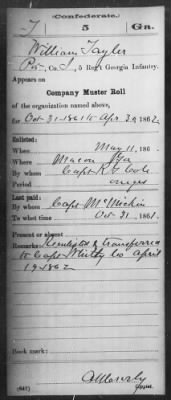 Confederate.
T 5 Ga.
William Tayler
Pvt, Co. I, 5 Reg't Georgia Infantry.
Appears on
Company Muster Roll
of the organization named above,
for Oct 31 1861 to Apr 30, 1862.
Enlisted:
When May 11, 186
Where Macon Ga
By whom Capt
Period
Last paid:
By whom Capt
To what time Oct 31, 1861.
Present or absent
Remarks: transferred
to Capt Co April
19 1862
Book mark:
(642)
Copyist.